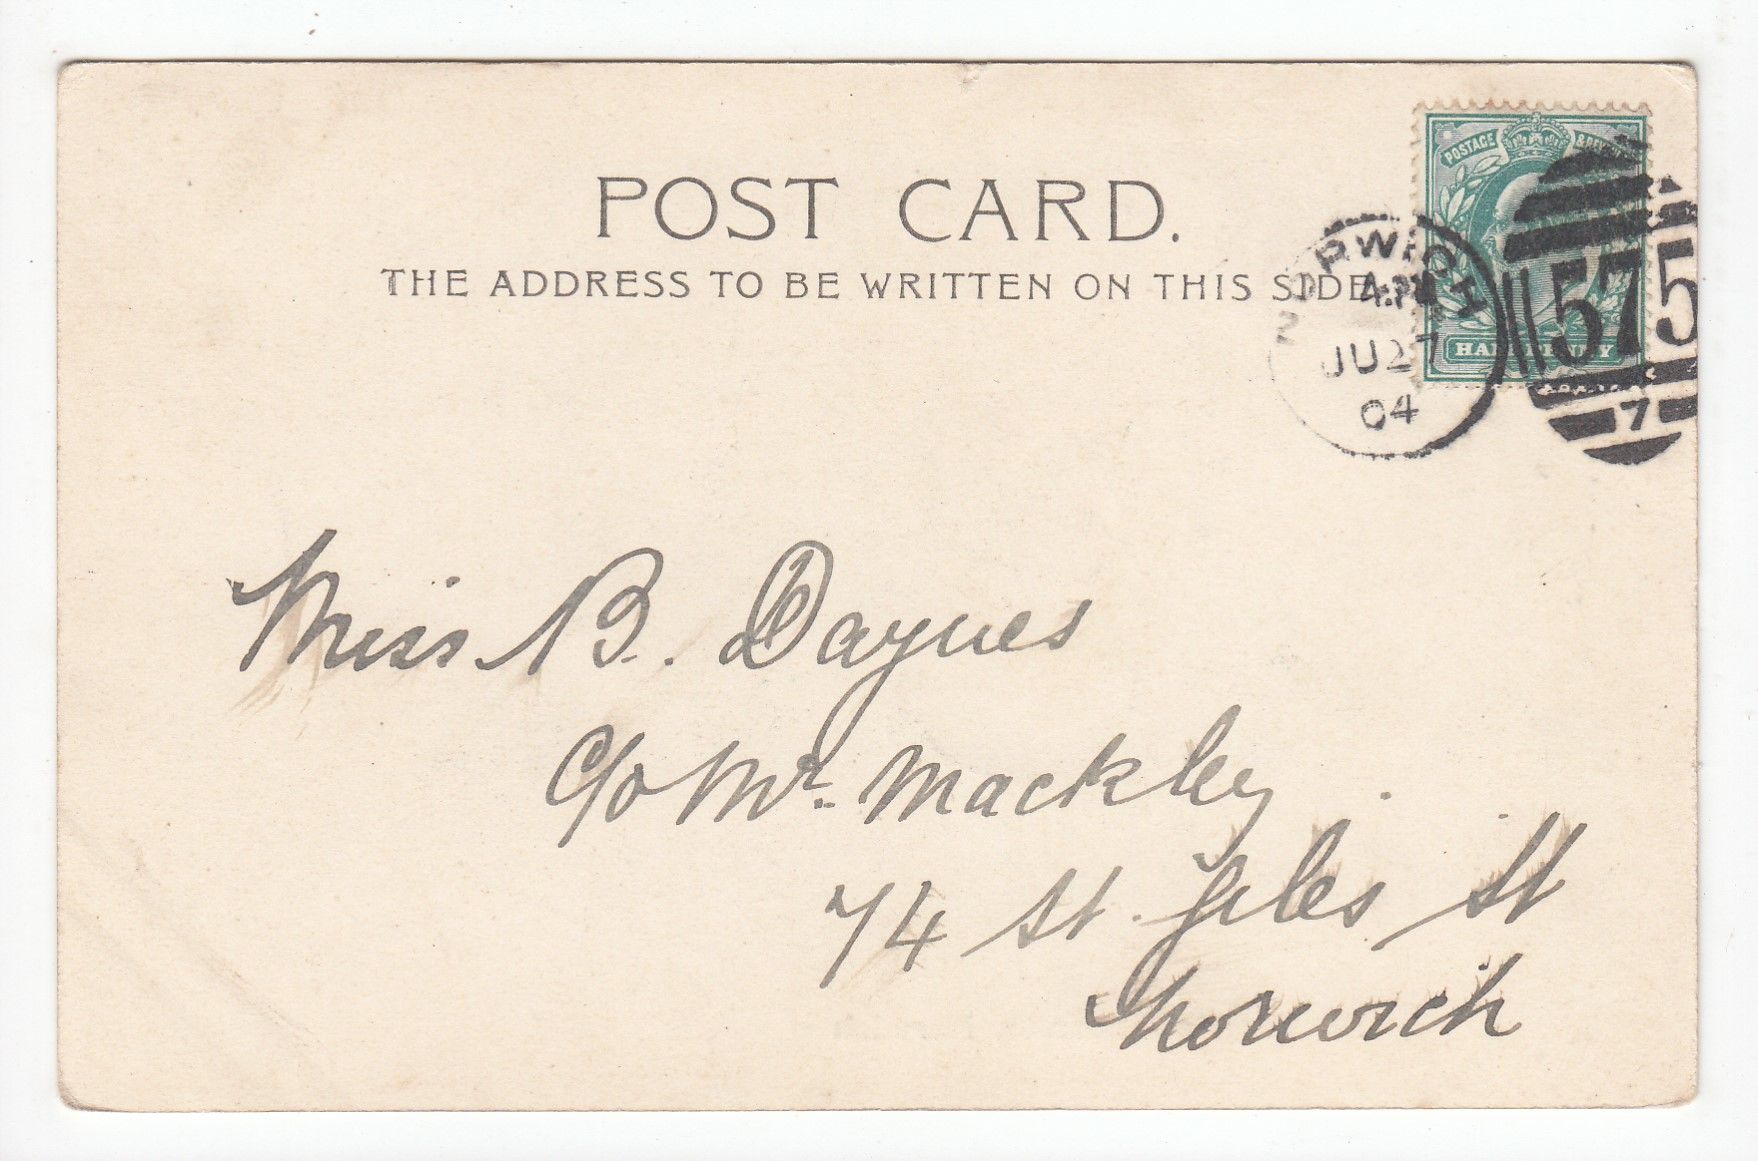 POST CARD.
THE ADDRESS TO BE WRITTEN ON THIS SIDE
POSTAGE & REVENUE
HALFPENNY
NORWICH
4.PM
JU 27
04
575
7
Miss B. Daynes
C/o Mr. Mackley
74 St. Giles St
Norwich